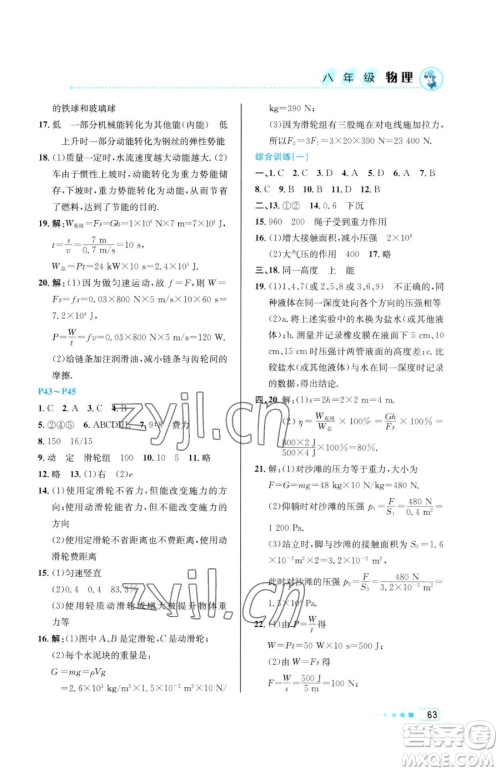 八年级 物理
的铁球和玻璃球
17. 低 一部分机械能转化为其他能(内能) 低
上升时一部分动能转化为钢丝的弹性势能
18. (1)质量一定时,水流速度越大动能越大 (2)
车由于惯性上坡,动能转化为重力势能
储存,下坡时,重力势能转化为动能释放出
来,达到节能的目的.
19. 解:W有用=Fs=Gh=1×10⁴ N×7 m=7×10⁴ J
t=s/v=7 m/0.7 m/s=10 s
W总=Pt=24 kW×10 s=2.4×10⁵ J
20. 解:(1)因为做匀速运动,故 f=F,则 W=
Fs=fs=0.03×800 N×5 m=120 J
P=W/t=fv=0.03×800 N×5 m/s=120 W
(2)给齿轮添加润滑油,减小链条与齿轮间的
摩擦.
P43~P45
1. C 2. A 3. C 4. B
5. ②④⑤ 6. ABCDIJ 7. 9:8 费力
8. 150 16/15
9. 动 定 滑轮组 100 10. B 11. C
12. 略 13. (1)右 (2)e
14. (1)使用定滑轮不省力,但能改变施力的方
向 (2)使用动滑轮能省力,但不能改变施力
的方向 (3)使用定滑轮不省距离,使用动滑
轮费距离
15. (1)匀速竖直
(2)0.4 0.83 变大
(3)使用轻质动滑轮或增大被提升物体重
力等
16. 解:(1)图中 A、B 是定滑轮,C 是动滑轮.
(2)每个水泥块的重量是
G=mg=ρVg
=2.6×10³ kg/m³×1.5×10⁻² m³×10 N/
kg=390 N
(3)因为滑轮组有三股绳在对电线施加拉力,
所以 F₂=3F₁=3×20×390 N=23 400 N.
综合训练(一)
一、1. C 2. A 3. B 4. C 5. D 6. D 7. B
8. C 9. B 10. C 11. D 12. C
二、13. ①② 14. 0.6 下沉
15. 960 200 绳子受到重力作用
16. (1)增大接触面积,减小压强 2×10⁸
(2)大气压的作用 400 17. 略
三、18. 同一高度 上 能
19. (1)1,4,7(或 2,5,8 或 3,6,9) 不正确,同
种液体在同一深度处向各个方向的压强相等
(2)a. 将上述实验中的水换为盐水(或其他
液体) b. 测量并记录橡皮膜到水面 5 cm、
10 cm、15 cm 深度时液体的压强值;c. 比较
分析实验数据,归纳得出结论.
四、20. 解:(1)s=2h=2×2 m=4 m.
(2) η=W有用/W总×100%=Gh/Fs×100%=
800×2 J/500×4 J×100%=80%
21. 解:(1)对沙滩的压力等于重力,大小为
F=G=mg=48 kg×10 N/kg=480 N.
(2)仰躺时对沙滩的压强 p₁=F/S₁=480 N/0.4 m²=
1 200 Pa.
(3)站立时,与沙滩的接触面积为 S=1.6
×10⁻² m²×2=3.2×10⁻² m²
此时对沙滩的压强 p₂=F/S₂=480 N/3.2×10⁻² m²=
1.5×10⁴ Pa.
22. 解:(1)由 P=W/t得
W=Pt=100 W×5 s=500 J
(2)由 W=Fs 得
F=W/s=500 J/5 m=100 N
63
zyjl.cn
zyjl.cn